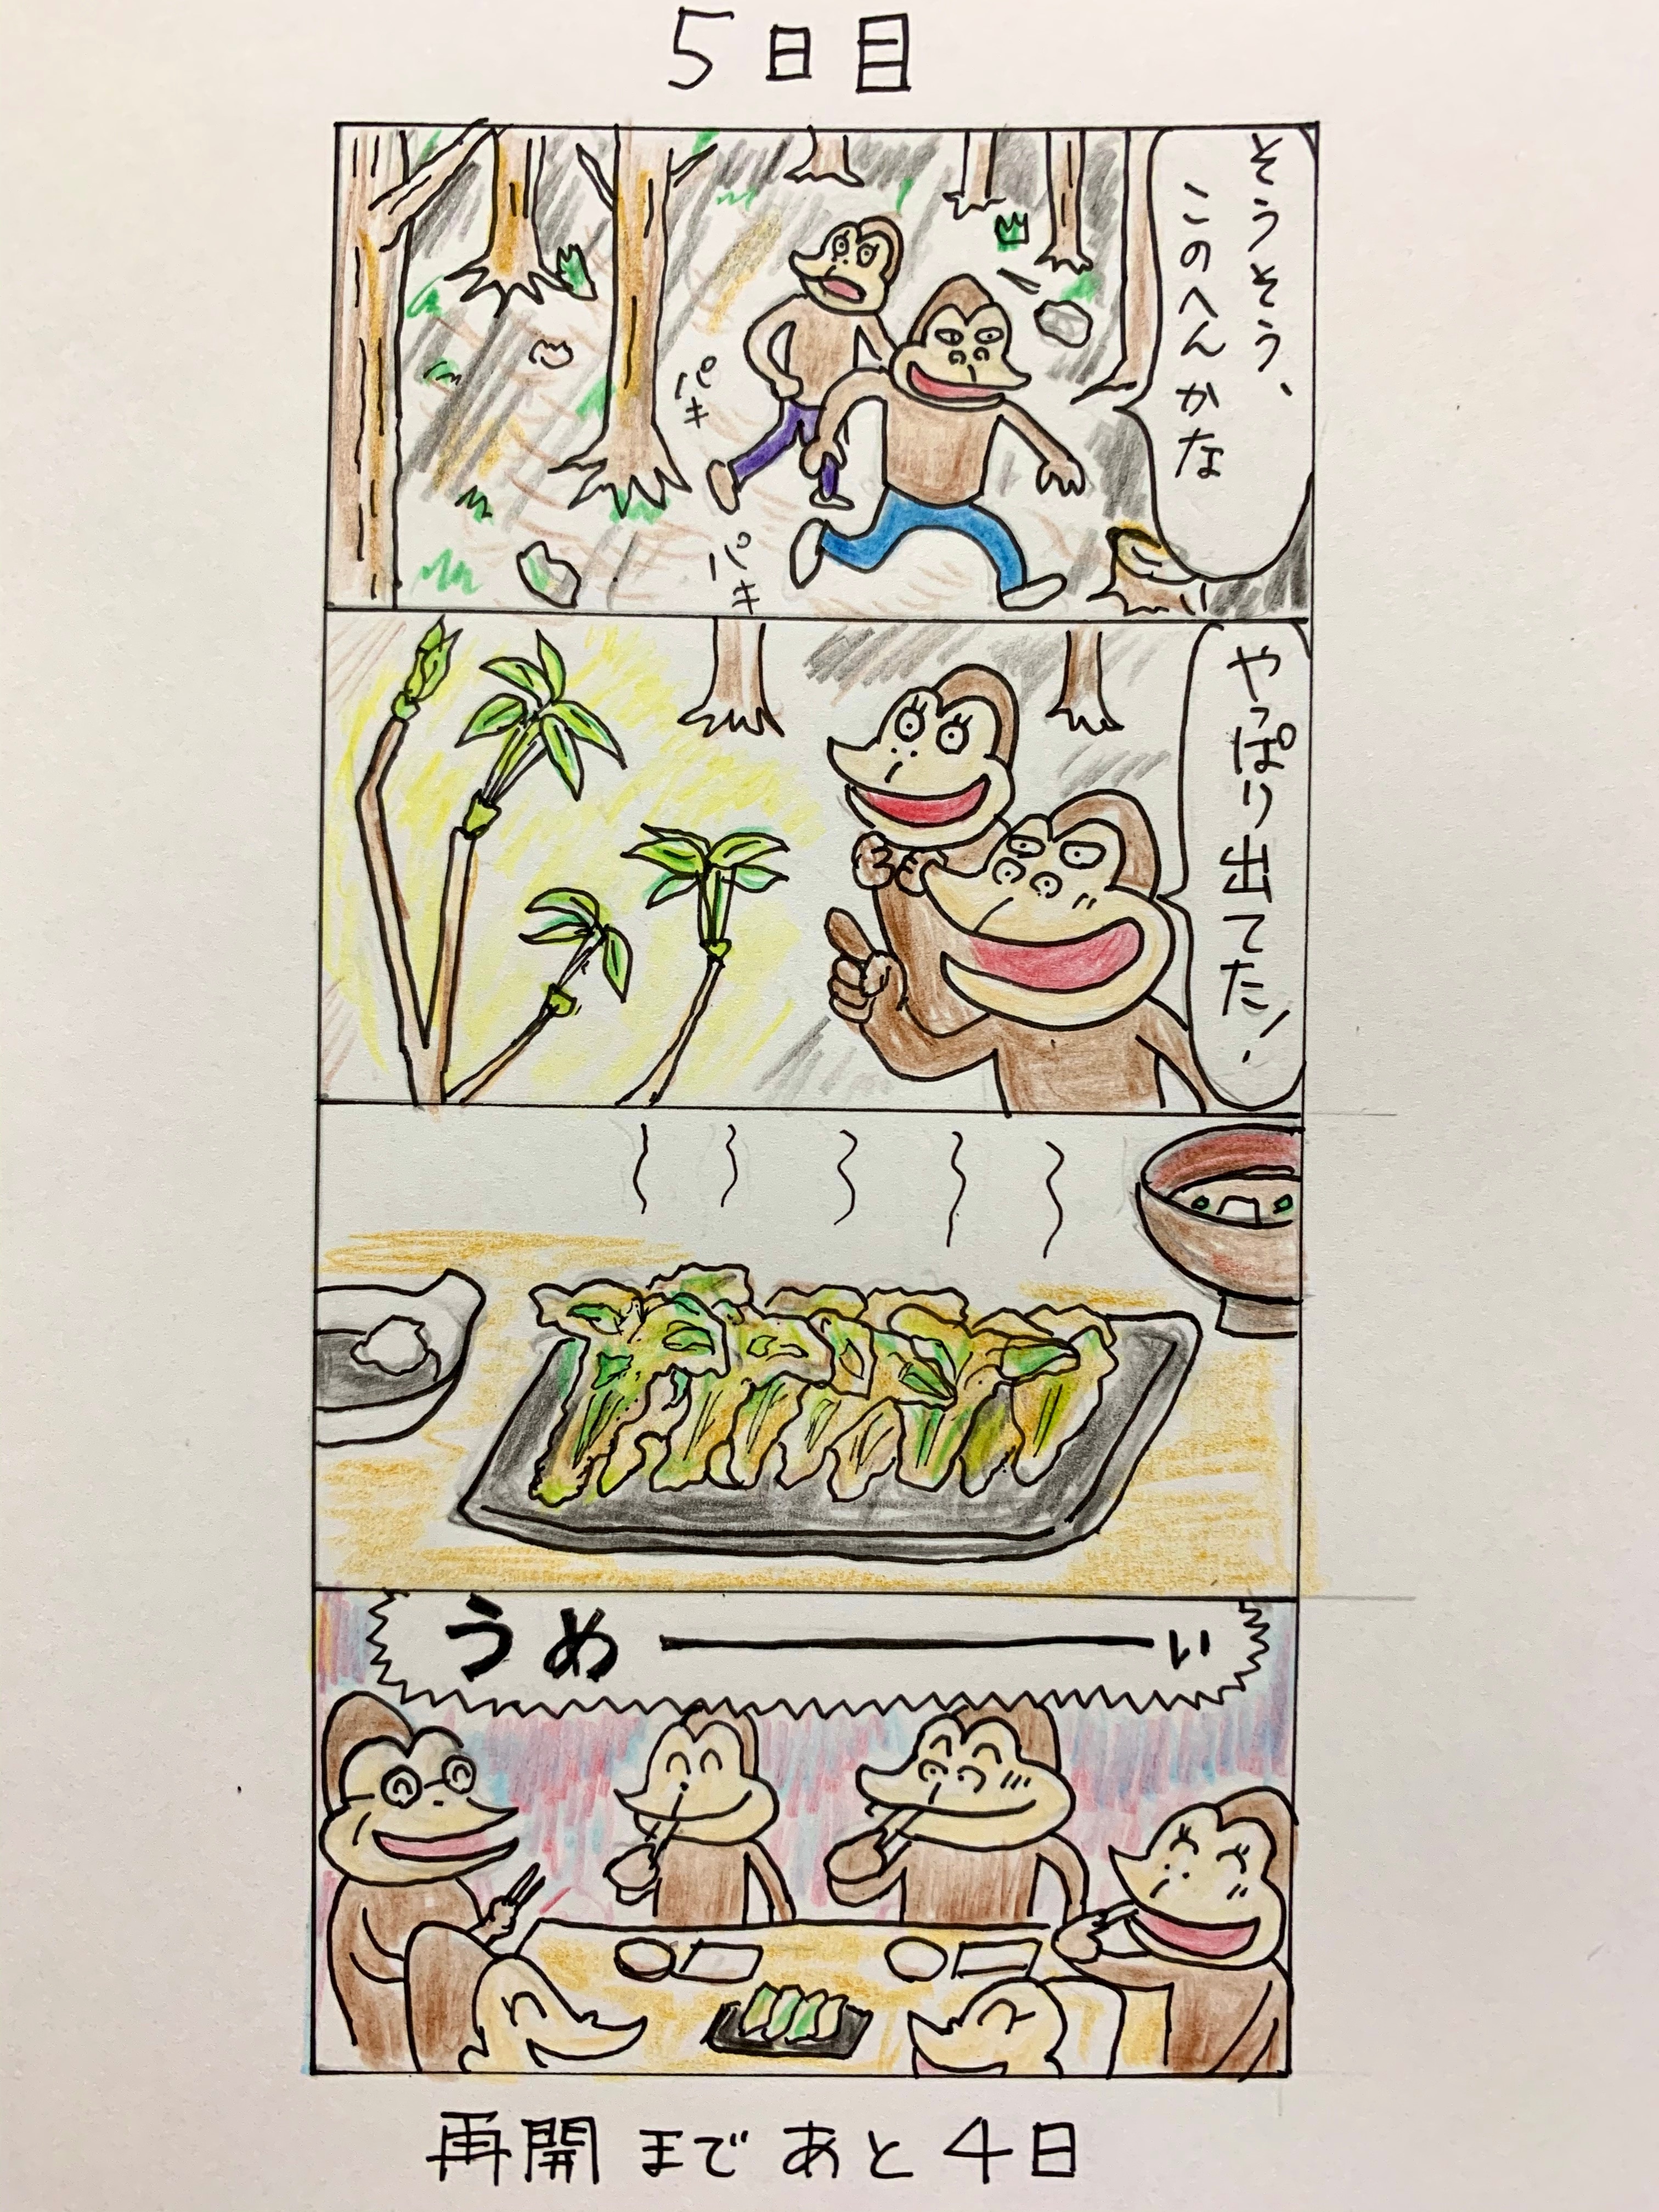 5日目
そうそう、
このへんかな
パキ
パキ
やっぱり出てた!
うめーーい
再開まであと4日